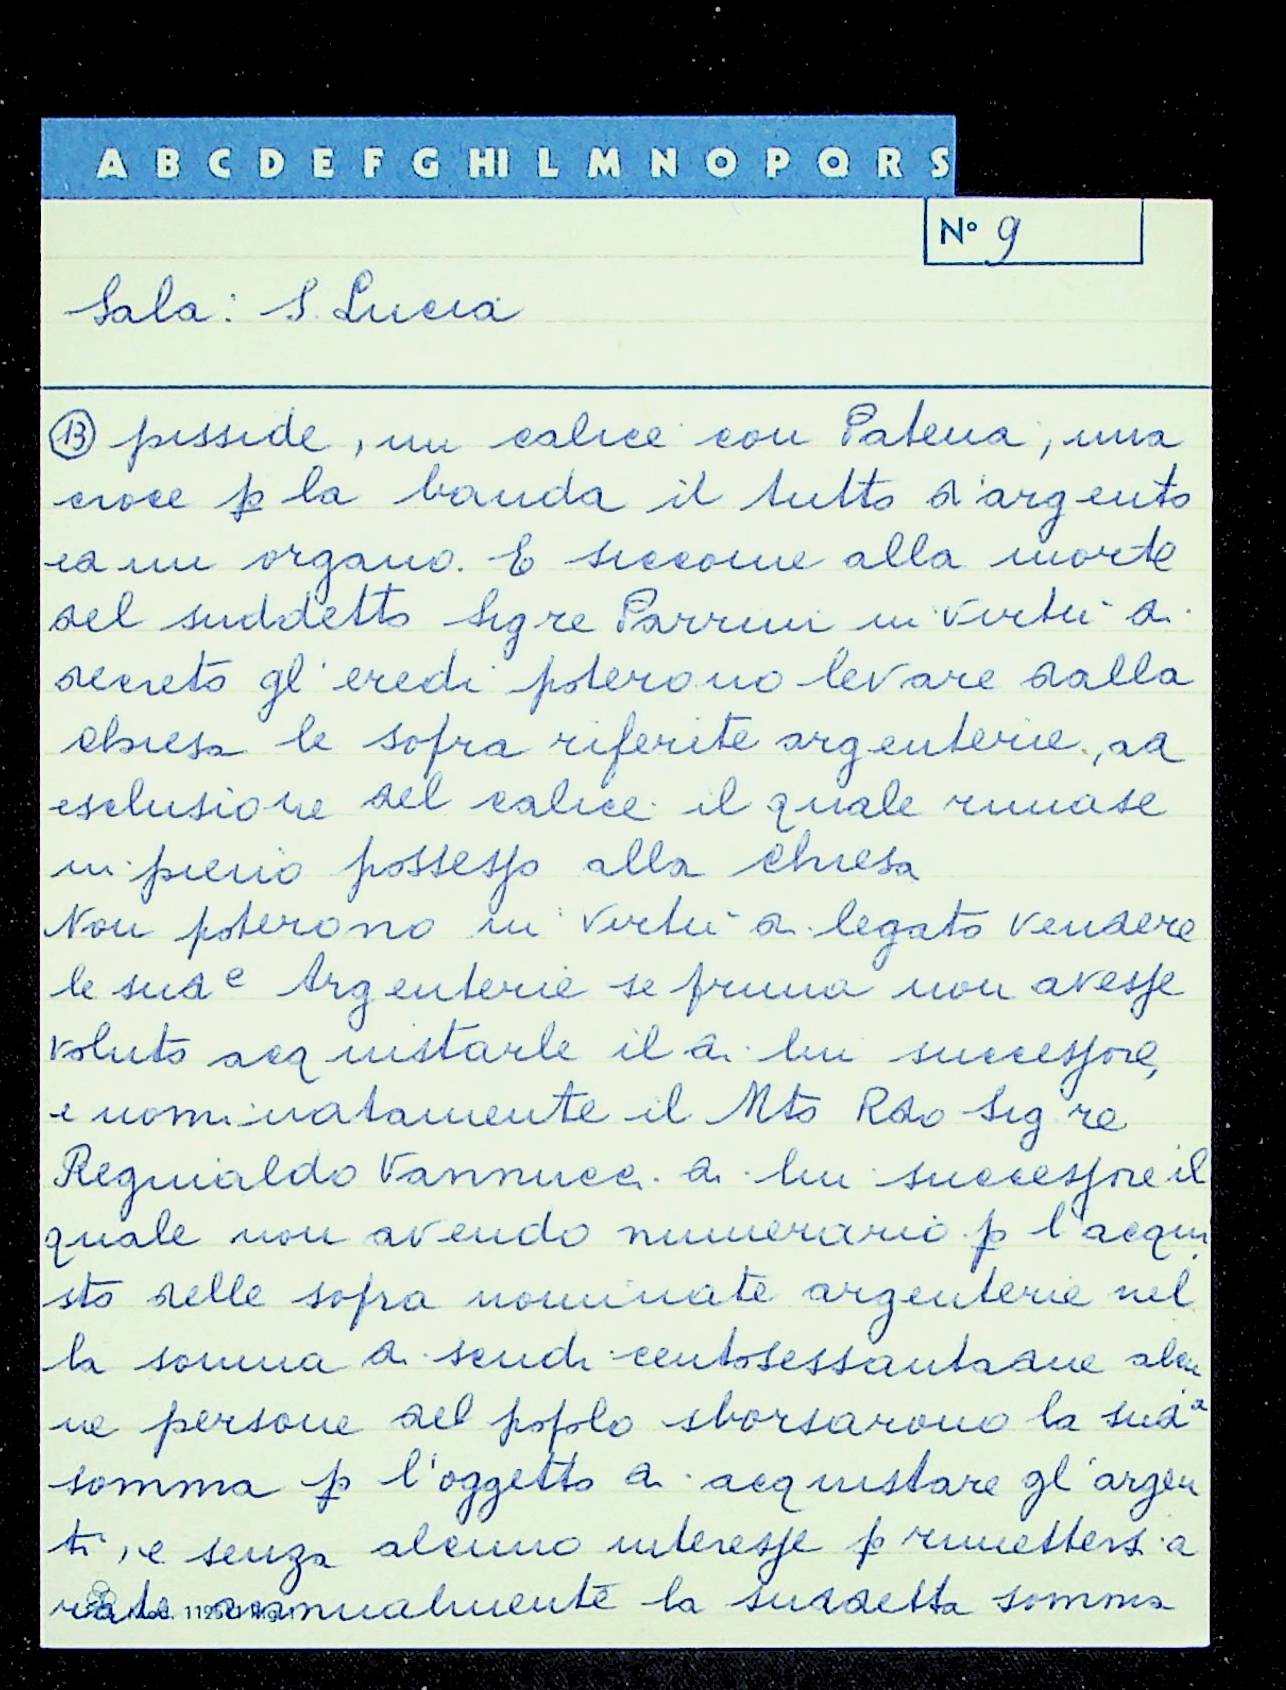 A B C D E F G HI L M N O P Q R S
N° 9
Sala: S. Lucia
13 pisside, un calice con Patena, una
croce p la banda il tutto d'argento
ed un organo. E siccome alla morte
del suddetto Sigre Parrini in virtù di
decreto gl'eredi poterono levare dalla
Chiesa le sopra riferite argenterie, ad
esclusione del calice il quale rimase
in pieno possesso alla Chiesa
Non poterono in virtù di legato vendere
le sudᵉ Argenterie se prima non avesse
voluto acquistarle il di lui successore,
e nominatamente il Mto Rdo Sigre
Reginaldo Vannucci di lui successore il
quale non avendo numerario p l'acqui
sto delle sopra nominate argenterie nel
la somma di scudi centosessantadue alcu
ne persone del popolo sborsarono la sudᵃ
somma p l'oggetto di acquistare gl'argen
ti, e senza alcuno interesse p rimettersi a
rate annualmente la suddetta somma